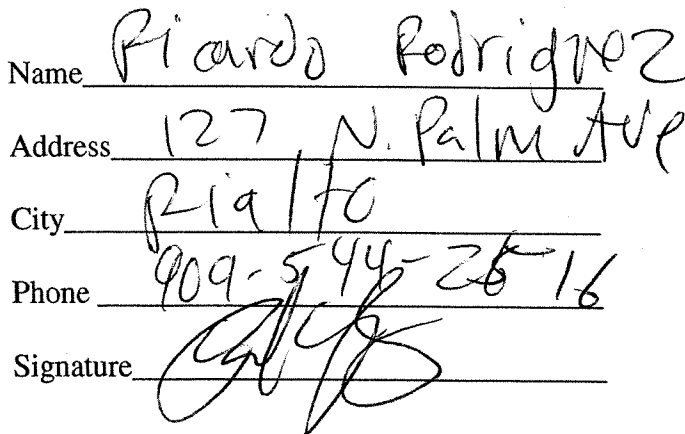 Name Ricardo Rodriguez
Address 127 N. Palm Ave
City Rialto
Phone 909-544-2516
Signature